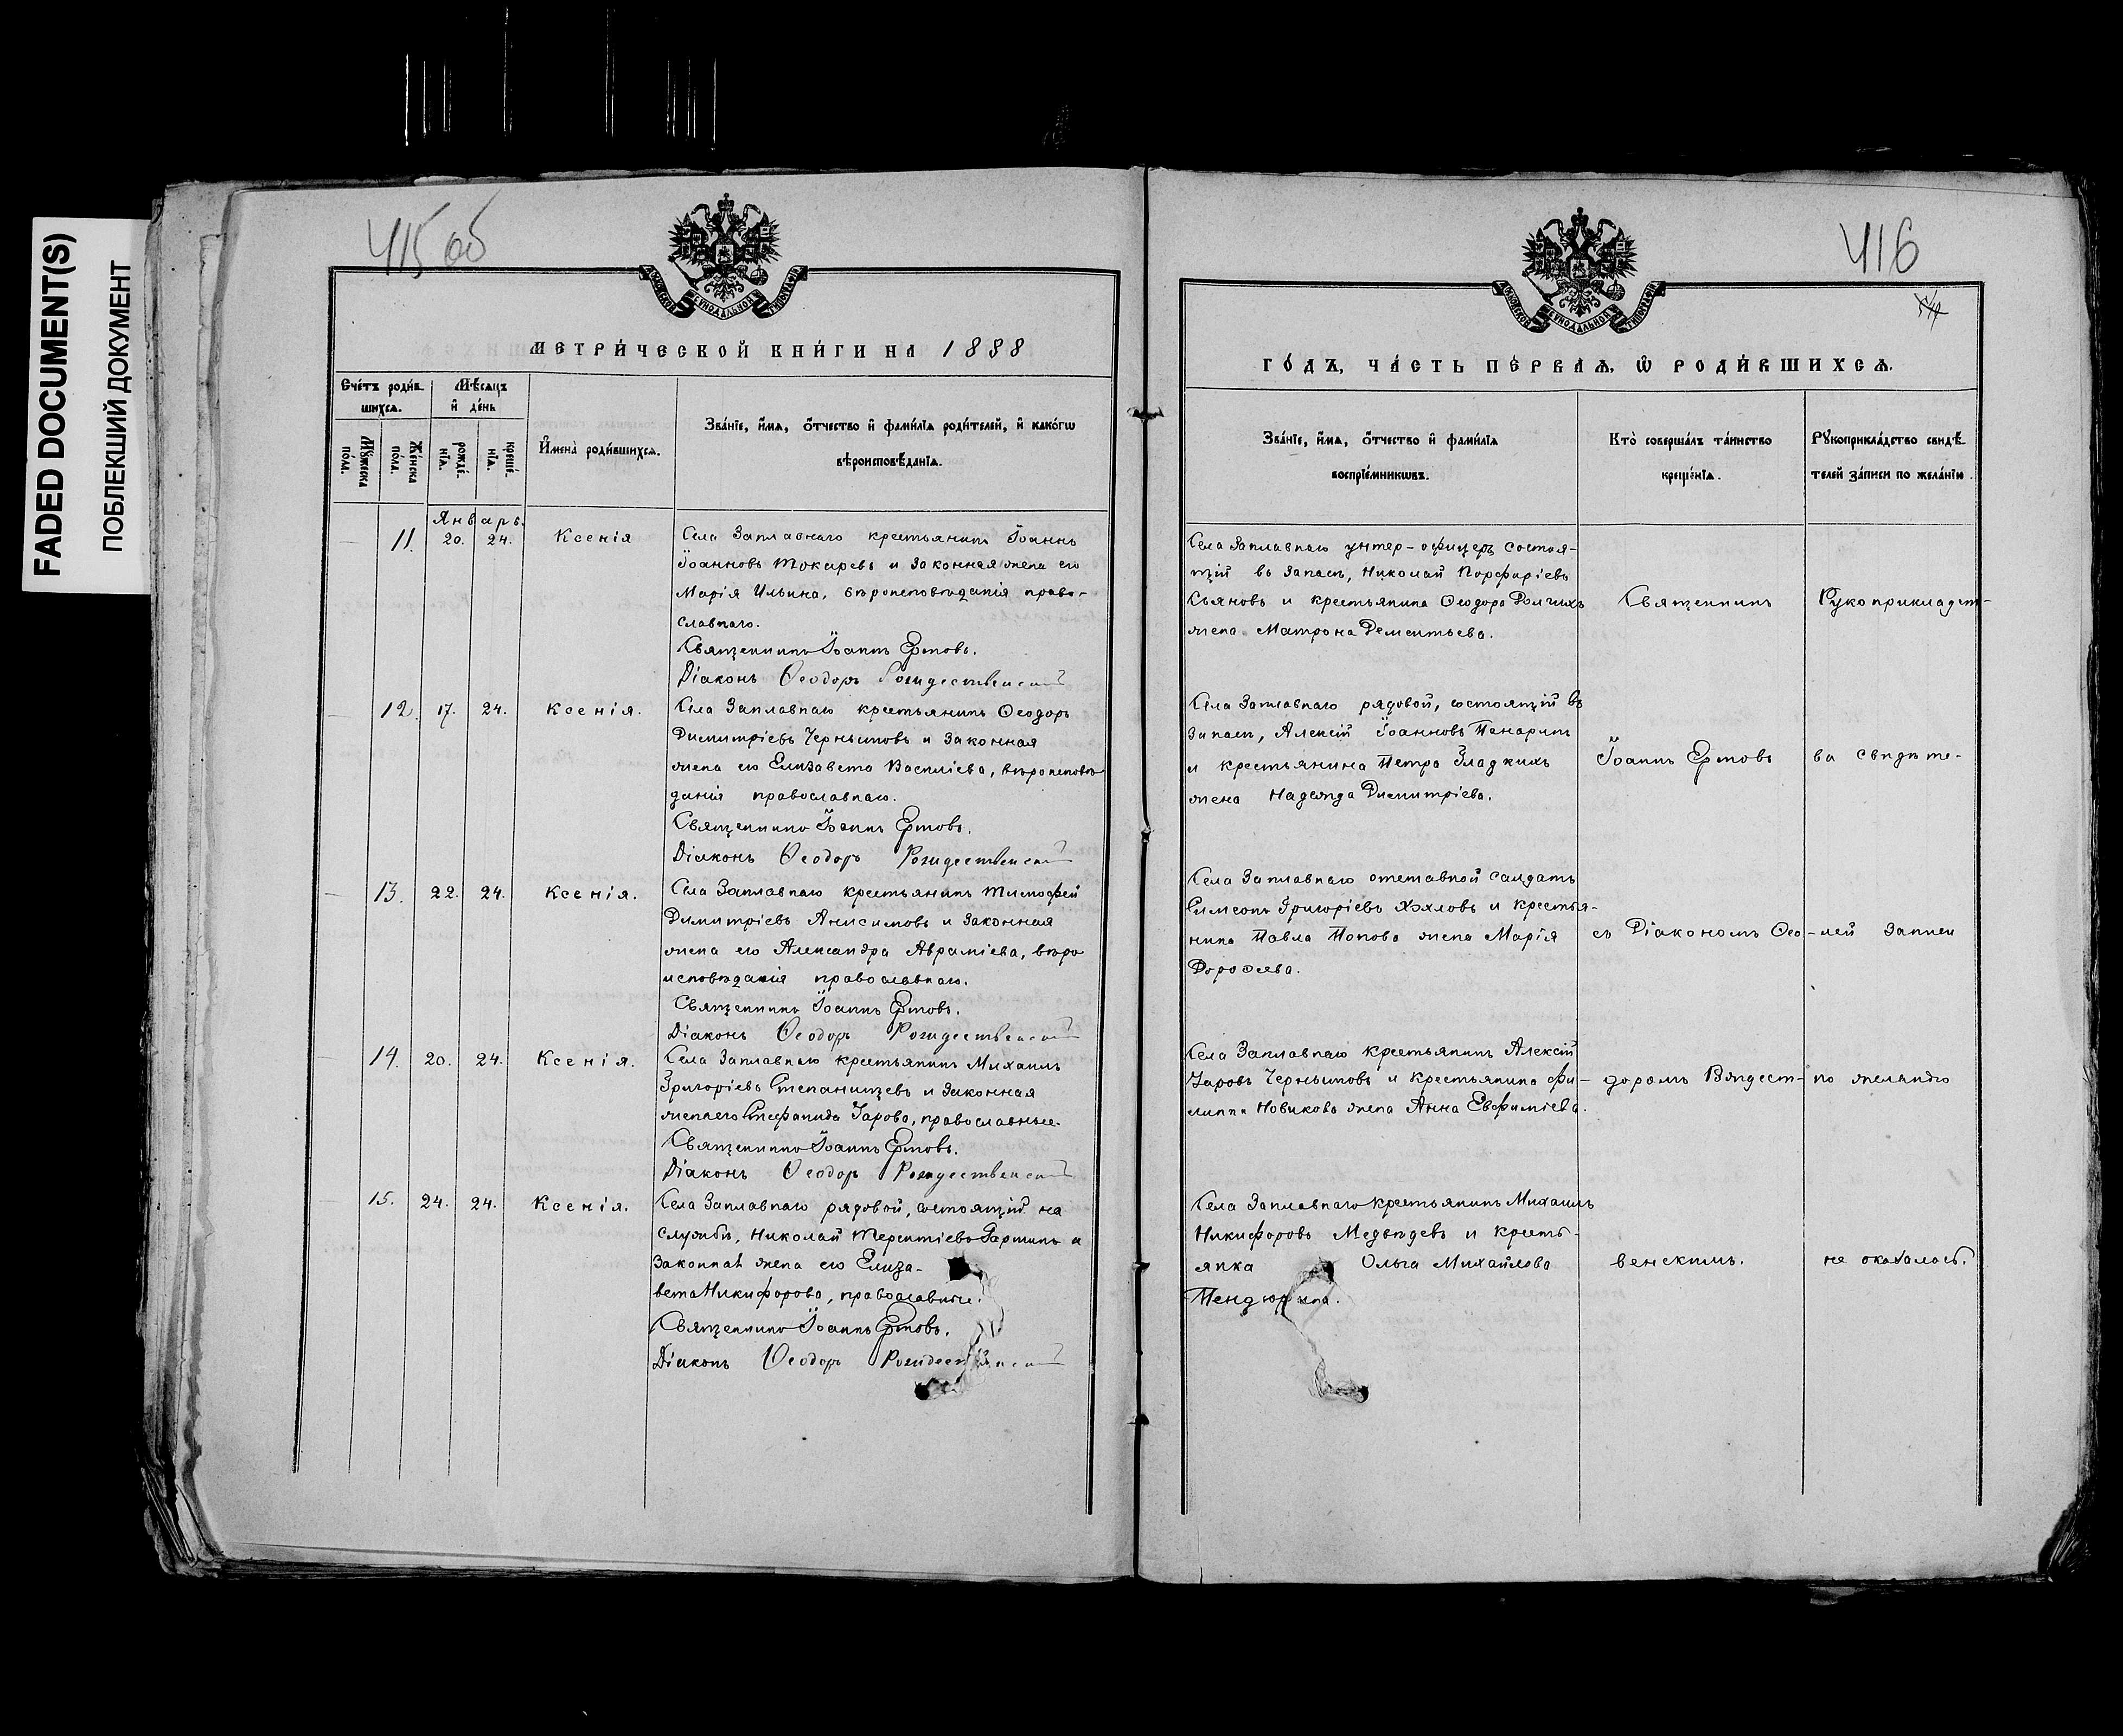 FADED DOCUMENT(S)
ПОБЛЕКШИЙ ДОКУМЕНТ
415 об
МЕТРИ́ЧЕСКОЙ КНИ́ГИ НА 1888
Сче́тъ роди́в-
шихсѧ.
Мѣ́сѧцъ
и҆ де́нь
Мꙋ́жеска
по́ла.
Же́нска
по́ла.
рожде́-
нїѧ.
креще́-
нїѧ.
И҆мена̀ роди́вшихсѧ.
Зва́нїе, и҆́мѧ, ѻ҆́тчество и҆ фами́лїѧ роди́телей, и҆ како́гѡ
вѣроисповѣ́данїѧ.
Январь.
— 11. 20. 24. Ксенія
Села Заплавнаго крестьянинъ Іоаннъ
Іоанновъ Токаревъ и законная жена его
Марія Ильина, вѣроисповѣданія право-
славнаго.
Священникъ Іоаннъ Ертовъ.
Діаконъ Ѳеодоръ Рождественскій
— 12. 17. 24. Ксенія.
Села Заплавнаго крестьянинъ Ѳеодоръ
Димитріевъ Чернышовъ и законная
жена его Елизавета Василіева, вѣроисповѣ-
данія православнаго.
Священникъ Іоаннъ Ертовъ.
Діаконъ Ѳеодоръ Рождественскій
— 13. 22. 24. Ксенія.
Села Заплавнаго крестьянинъ Тимофей
Димитріевъ Анисимовъ и законная
жена его Александра Авраміева, вѣро
исповѣданія православнаго.
Священникъ Іоаннъ Ертовъ.
Діаконъ Ѳеодоръ Рождественскій
— 14. 20. 24. Ксенія.
Села Заплавнаго крестьянинъ Михаилъ
Григоріевъ Степанищевъ и законная
жена его Стефанида Уарова, православные.
Священникъ Іоаннъ Ертовъ.
Діаконъ Ѳеодоръ Рождественскій
— 15. 24. 24. Ксенія.
Села Заплавнаго рядовой, состоящій на
службѣ, Николай Терентіевъ и
законная жена его Елиза-
вета Никифорова, православные.
Священникъ Іоаннъ Ертовъ.
Діаконъ Ѳеодоръ Рождественскій
416
ГО́ДЪ, ЧА́СТЬ ПЕ́РВАѦ, Ѡ҆ РОДИ́ВШИХСѦ.
Зва́нїе, и҆́мѧ, ѻ҆́тчество и҆ фами́лїѧ
воспрїе́мникѡвъ.
Кто̀ соверша́лъ та́инство
креще́нїѧ.
Рꙋкоприкла́дство свидѣ́-
телей за́писи по жела́нїю.
Села Заплавнаго унтер-офицеръ состоя-
щій въ запасѣ, Николай Порфиріевъ
Касьяновъ и крестьянина Ѳеодора Долгихъ
жена Матрона Дементьева.
Села Заплавнаго рядовой, состоящій въ
запасѣ, Алексій Іоанновъ Панаринъ
и крестьянина Петра Гладкихъ
жена Надежда Димитріева.
Села Заплавнаго отставной салдатъ
Симеонъ Григоріевъ Хохловъ и крестья-
нина Павла Попова жена Марія
Дороѳеева.
Села Заплавнаго крестьянинъ Алексій
Уаровъ Чернышовъ и крестьянина Фи-
липпа Новикова жена Анна Евфиміева.
Села Заплавнаго крестьянинъ Михаилъ
Никифоровъ Медвѣдевъ и кресть-
янка Ольга Михайлова
Пендюрина.
Священникъ
Іоаннъ Ертовъ
съ Діакономъ Ѳео-
доромъ Рождест-
венскимъ.
Рукоприкладст-
ва свидѣте-
лей записи
по желанію
не оказалось.